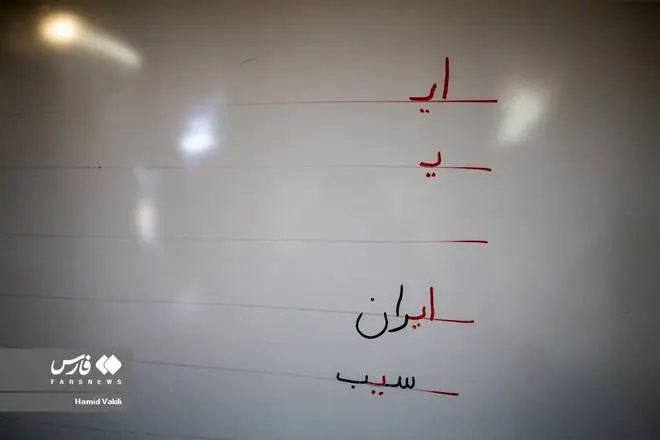 ایـ
یـ
ایران
سیب
فارس
FARSNEWS
Hamid Vakili